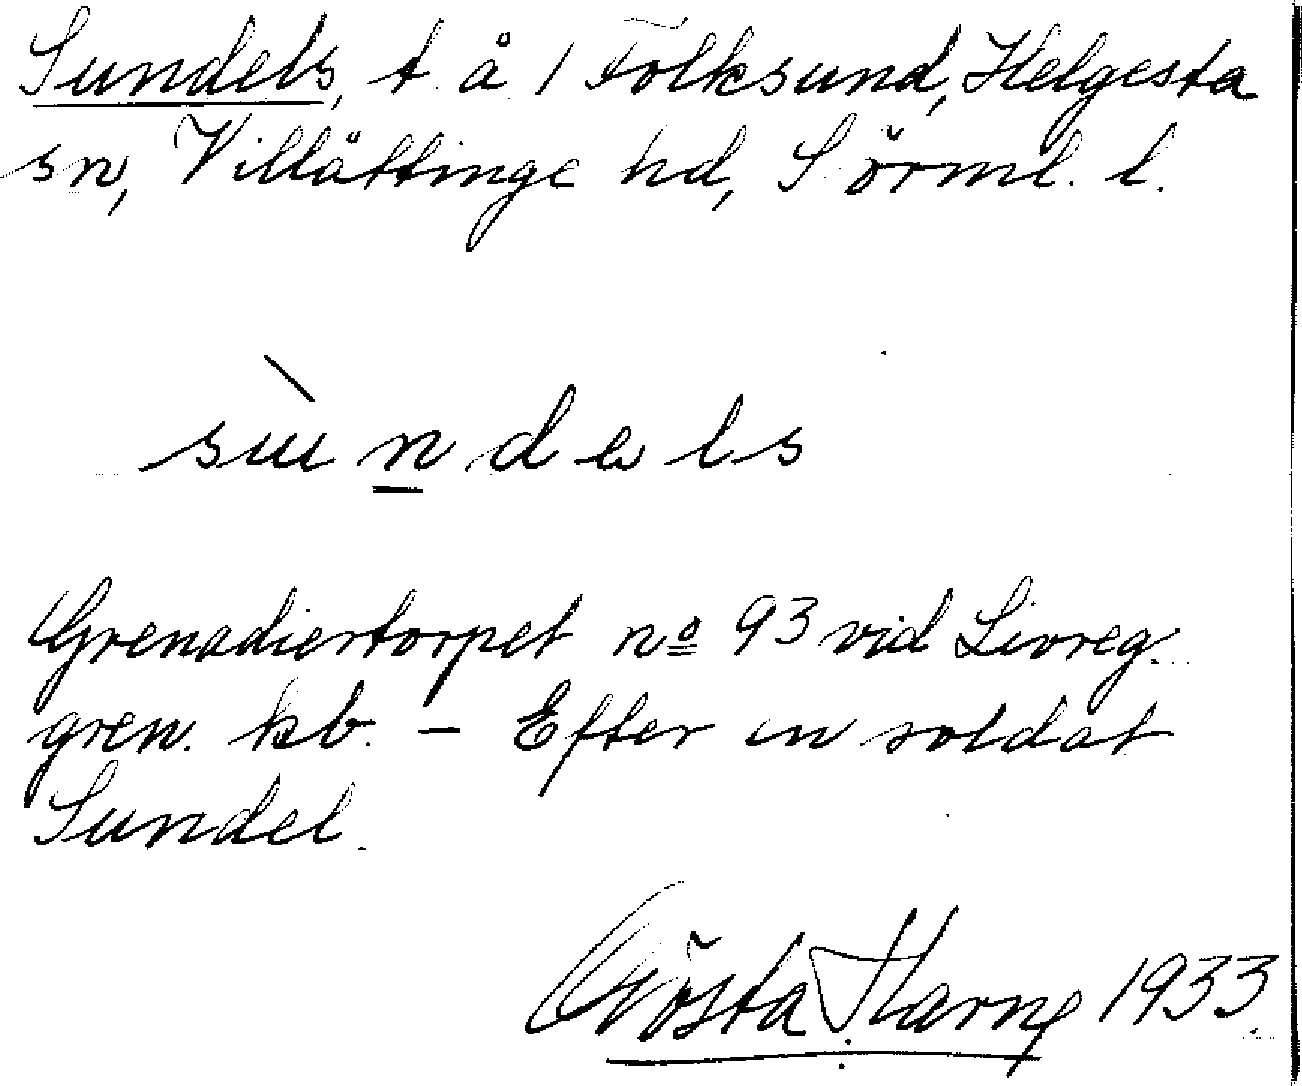 Sundels, t. å 1 Folksund, Helgesta
sn, Villåttinge hd, Sörml. l.
sùndels
Grenadiertorpet nº 93 vid Livreg.
gren. kb. – Efter en soldat
Sundel.
Gösta Harne 1933.